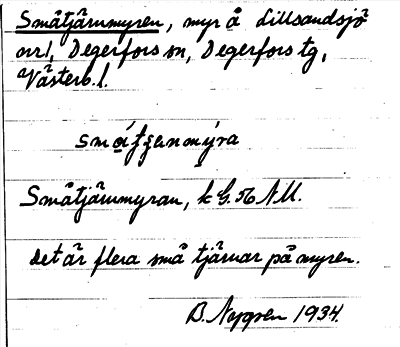 Småtjärnmyren, myr å Lillsandsjö
nr 1, Degerfors sn, Degerfors tg,
Västerb. l.
småtjenmýra
Småtjärnmyran, k G. 56 NM.
Det är flera små tjärnar på myren.
B. Nygren 1934.